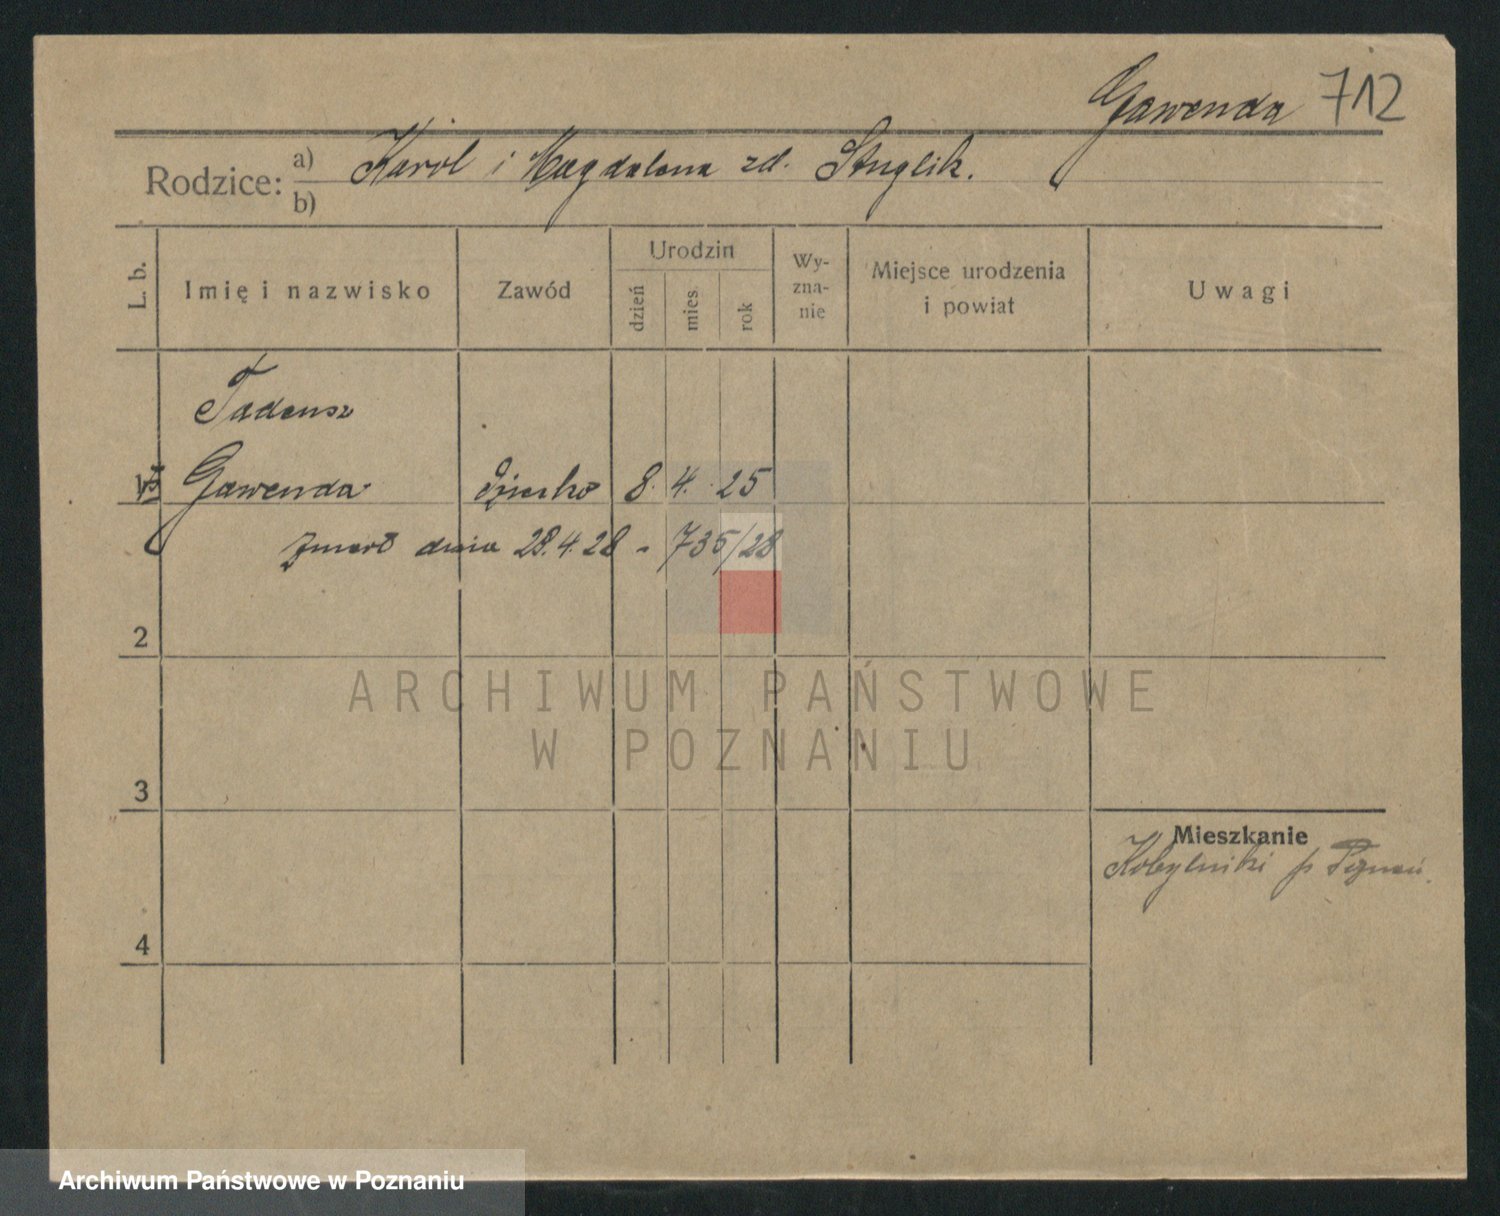 Gawenda 712
Rodzice: a) Karol i Magdalena zd. Stuglik.
b)
L. b.
Imię i nazwisko
Zawód
Urodzin
dzień
mies.
rok
Wy-
zna-
nie
Miejsce urodzenia
i powiat
Uwagi
Tadeusz
Gawenda dziecko 8. 4. 25
Zmarł dnia 28.4.28 - 735/28
2
ARCHIWUM PAŃSTWOWE
W POZNANIU
3
Mieszkanie
Kobylniki p Poznań.
4
Archiwum Państwowe w Poznaniu